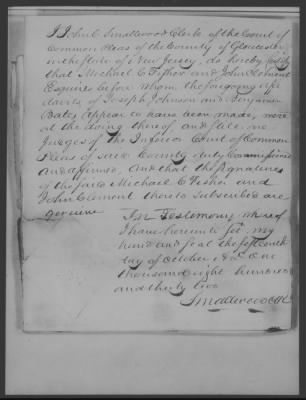 I John C Smallwood Clerk of the Court of
Common Pleas of the County of Gloucester
in the State of New Jersey, do hereby certify
that Michael C Fisher and John Clement
Esquires before whom the foregoing affi
davits of Joseph Johnson and Benjamin
Bates appear to have been made, were
at the doing thereof and still are
Judges of the Inferior Court of Common
Pleas of said County duly Commissioned
and affirmed, and that the signatures
of the said Michael C Fisher and
John Clement thereto subscribed are
genuine
In Testimony whereof
I have hereunto set my
hand and seal the fifteenth
day of October AD One
thousand eight hundred
and thirty two
Smallwood